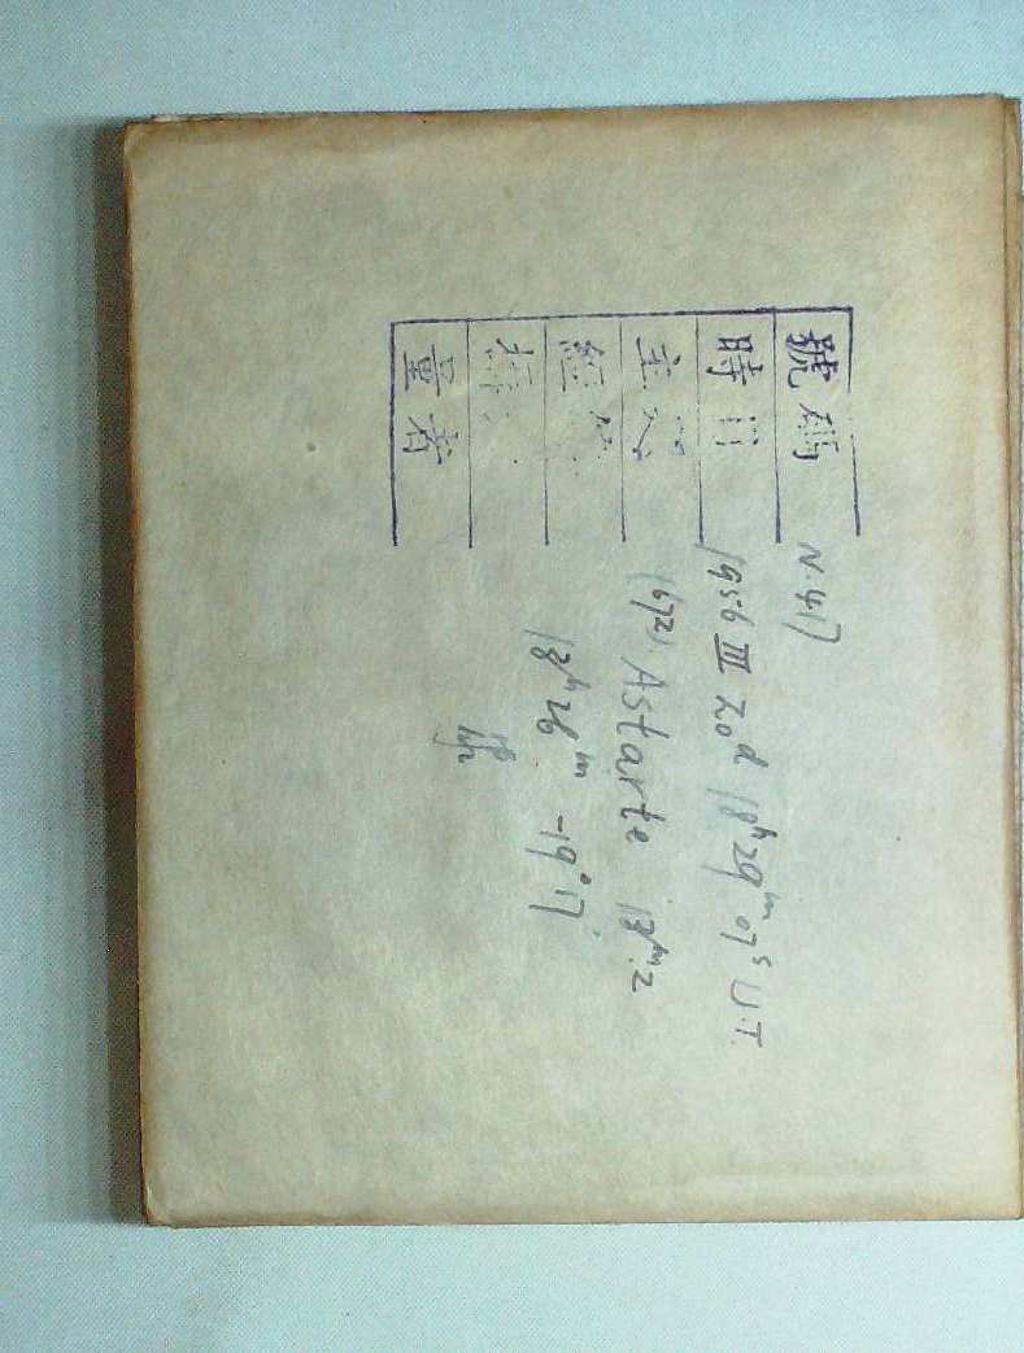 號碼 N.417
時間 1956 III 20ᵈ 18ʰ29ᵐ07ˢ U.T.
主 (672) Astarte 13ᵐ.2
經 13ʰ26ᵐ -19°17'
量者